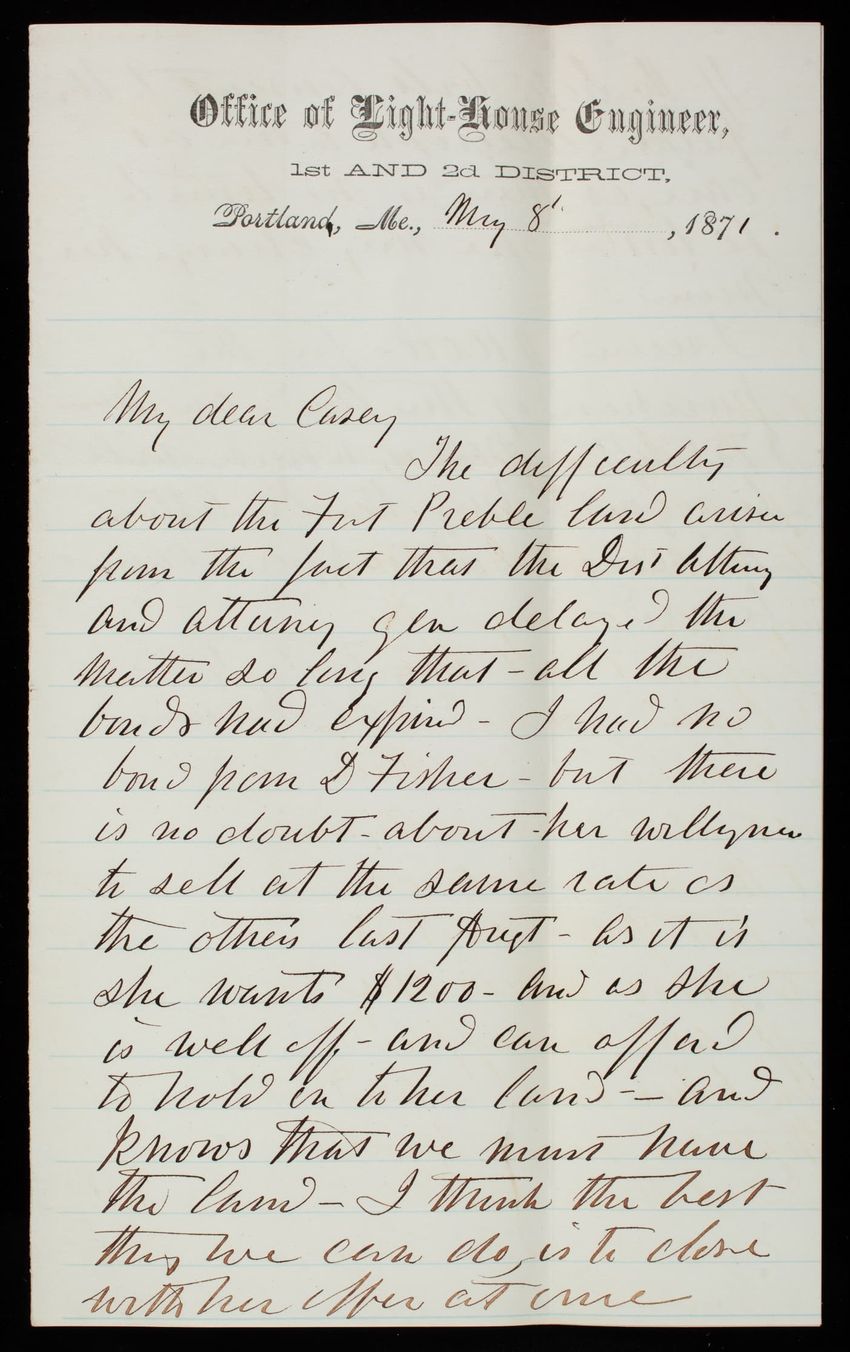 Office of Light-House Engineer,
1st AND 2d DISTRICT,
Portland, Me., May 8', 1871.
My dear Casey
The difficulty
about the Fort Preble land arises
from the fact that the Dist Attorney
and attorney gen delayed the
matter so long that - all the
bonds had expired - I had no
bond from D Fisher - but there
is no doubt - about - her willingness
to sell at the same rate as
the others last Augt - as it is
she wants $1200 - and as she
is well off - and can afford
to hold on to her land - and
knows that we must have
the land - I think the best
thing we can do, is to close
with her offer at once